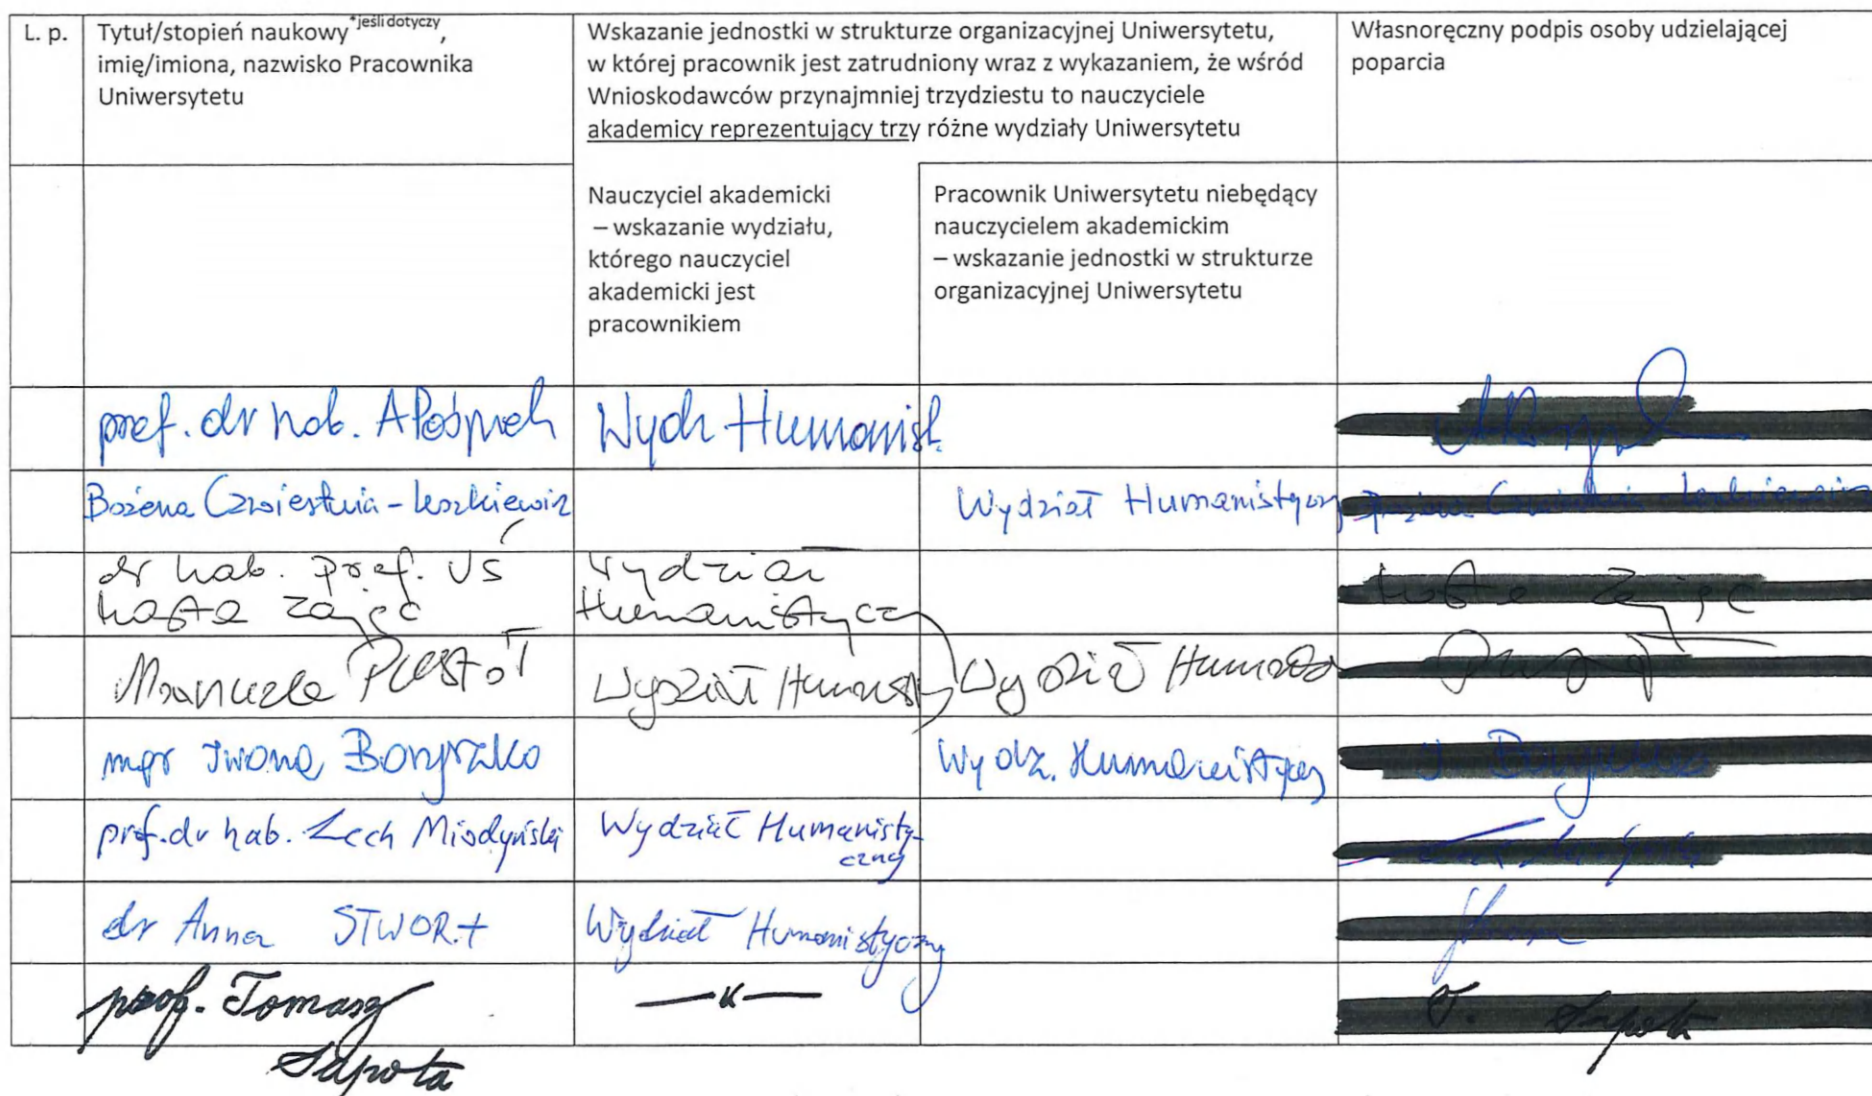 L. p.
Tytuł/stopień naukowy *jeśli dotyczy,
imię/imiona, nazwisko Pracownika
Uniwersytetu
Wskazanie jednostki w strukturze organizacyjnej Uniwersytetu,
w której pracownik jest zatrudniony wraz z wykazaniem, że wśród
Wnioskodawców przynajmniej trzydziestu to nauczyciele
akademicy reprezentujący trzy różne wydziały Uniwersytetu
Własnoręczny podpis osoby udzielającej
poparcia
Nauczyciel akademicki
– wskazanie wydziału,
którego nauczyciel
akademicki jest
pracownikiem
Pracownik Uniwersytetu niebędący
nauczycielem akademickim
– wskazanie jednostki w strukturze
organizacyjnej Uniwersytetu
prof. dr hab. A Pośpiech
Wydz Humanist.
Bożena
Wydział Humanistyczny
dr hab. prof. UŚ
Zając
Wydział
Humanistyczny
Wydział Humanist
Wydział
mgr Iwona
Wydz. Humanistyczny
prof. dr hab. Lech Miodyński
Wydział Humanisty-
czny
dr Anna STWORA
Wydział Humanistyczny
prof. Tomasz
Sapota
—"—
T. Sapota